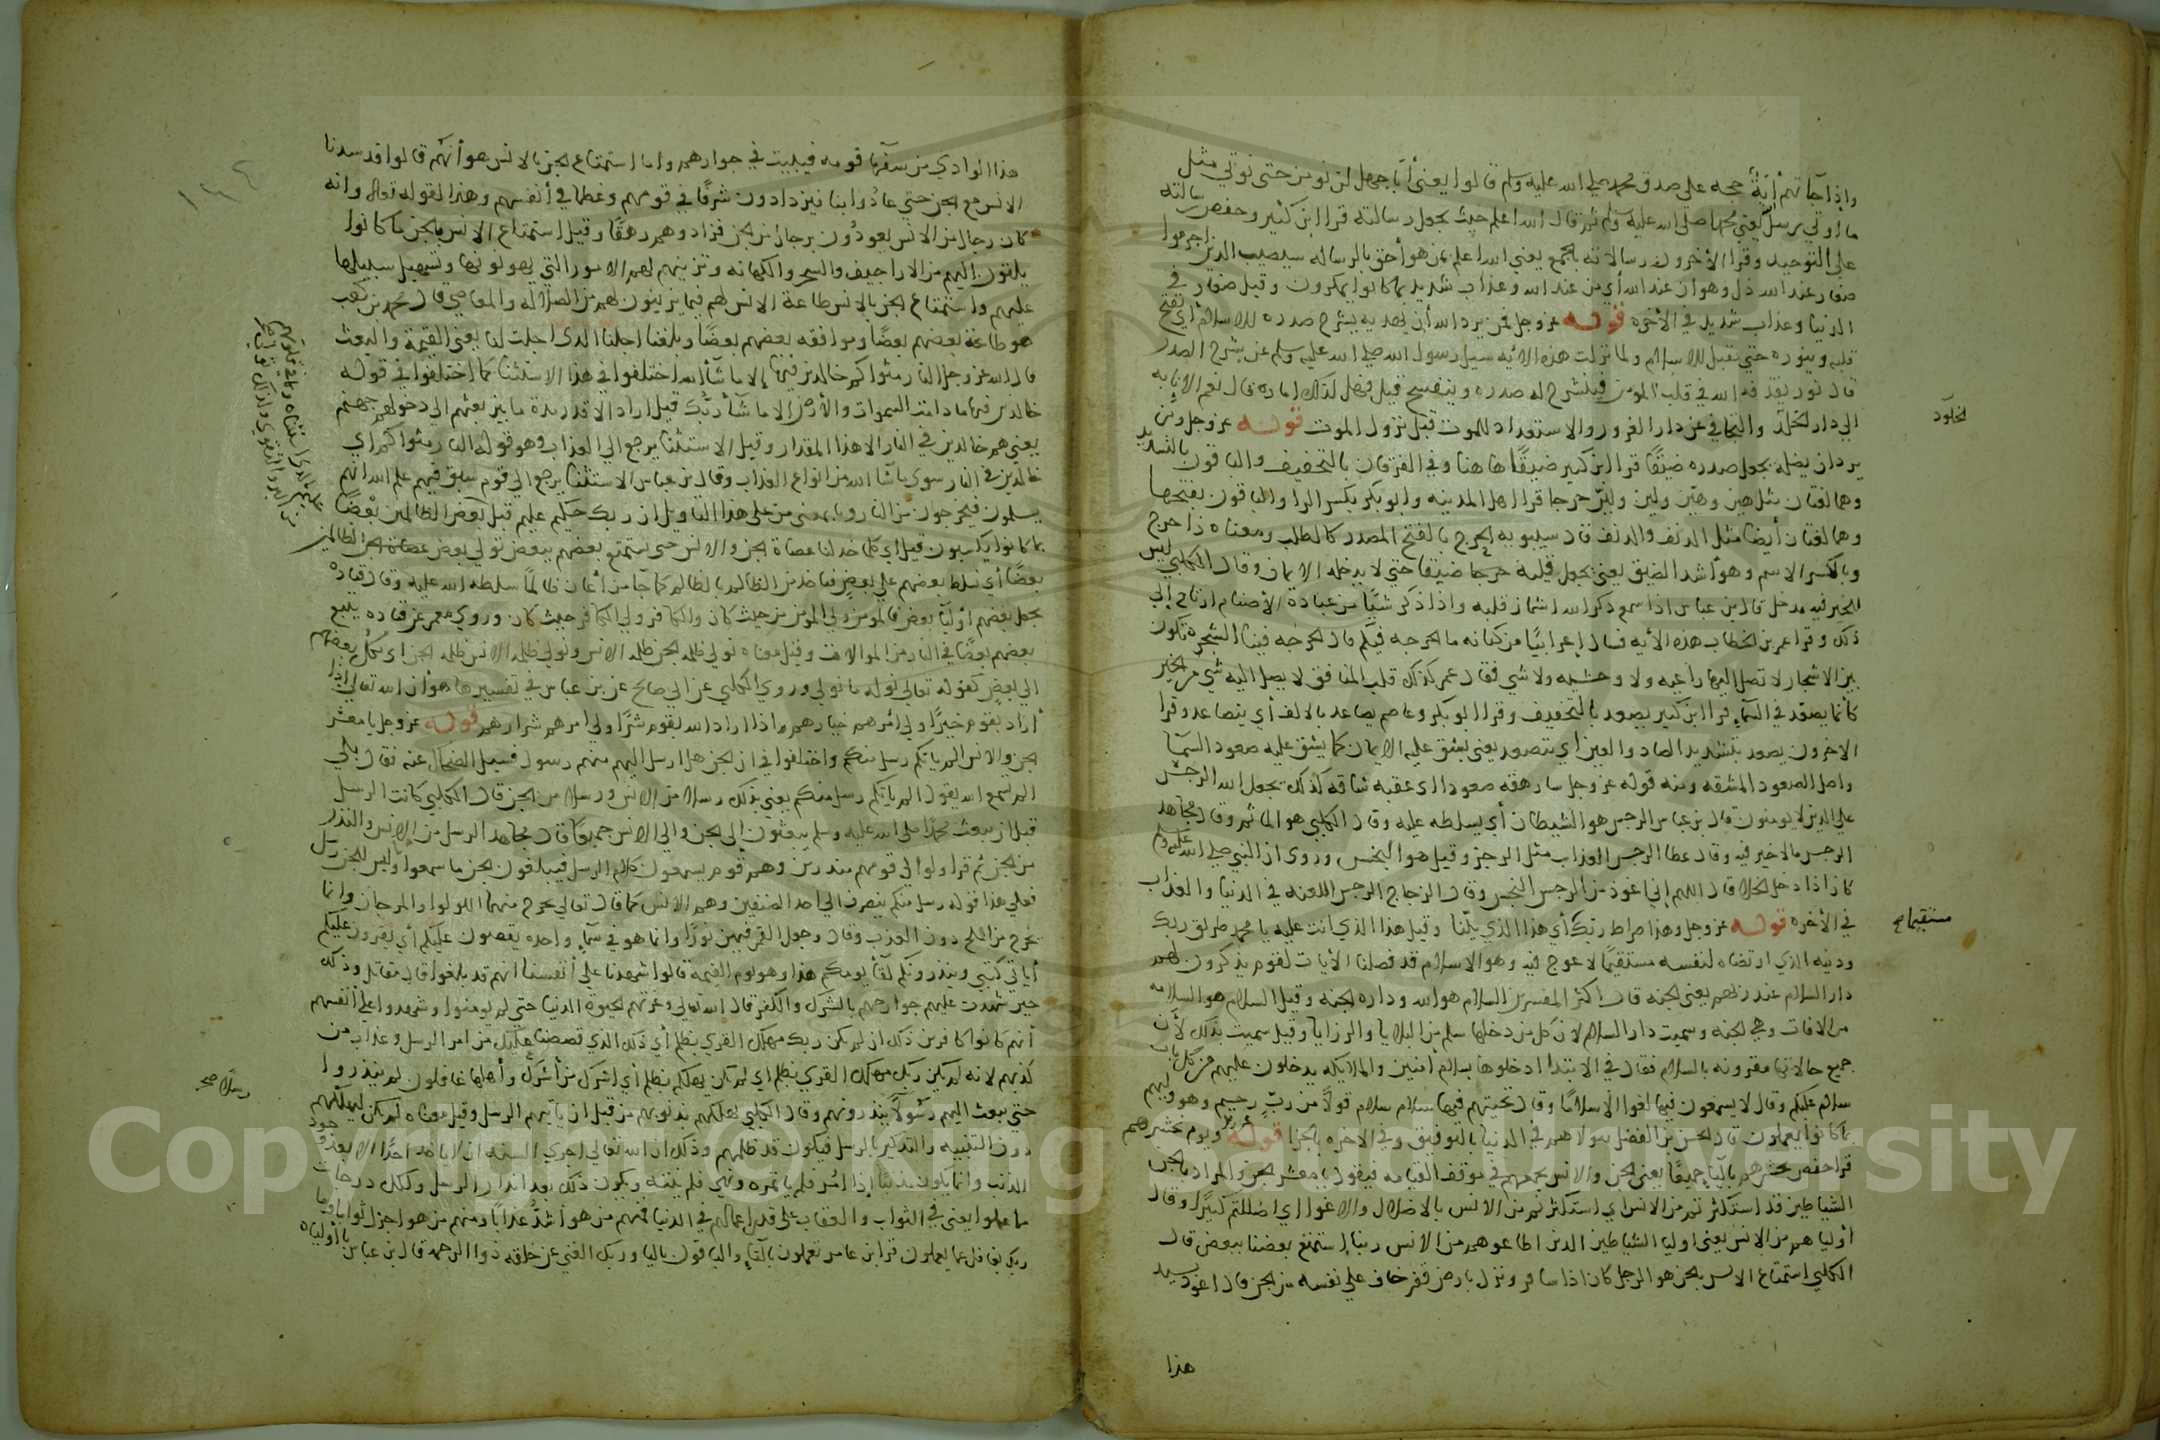 واذا جاتهم أية حجه على صدق محمد صلى الله عليه وسلم قالوا يعني أبا جهل لن نومن حتى نوتي مثل
ما اوتي رسل الله يعني محمدا صلى الله عليه وسلم ثم قال الله اعلم حيث يجعل رسالته قرا ابن كثير وحفص رسالته
على التوحيد وقرا الأخرون رسالاته بالجمع يعني الله اعلم بمن هو أحق بالرساله سيصيب الذين اجرموا
صغار عند الله ذل وهوان عند الله أي من عند الله وعذاب شديد بما كانوا يمكرون وقيل صغار في
الدنيا وعذاب شديد في الأخره قوله عز وجل فمن يرد الله أن يهديه يشرح صدره للاسلام أي يفتح
قلبه وينوره حتى يقبل الاسلام ولما نزلت هذه الايه سيل رسول الله صلى الله عليه وسلم عن شرح الصدر
قال نور يقذفه الله في قلب المومن فينشرح له صدره وينفسح قيل فهل لذلك اماره قال نعم الانابه
الى دار الخلد والتجافي عن دار الغرور والاستعداد للموت قبل نزول الموت قوله عز وجل ومن
يرد ان يضله يجعل صدره ضيقا قرا ابن كثير ضيقا هاهنا وفي الفرقان بالتخفيف والباقون بالتشديد
وهما لغتان مثل هين وهين ولين ولين حرجا قرا اهل المدينه وابو بكر بكسر الرا والباقون بفتحها
وهما لغتان أيضا مثل الدنف والدنف قال سيبويه الحرج بالفتح المصدر كالطلب ومعناه ذا حرج
وبالكسر الاسم وهو أشد الضيق يعني يجعل قلبه حرجا ضيقا حتى لا يدخله الايمان وقال الكلبي ليس
للخير فيه مدخل قال ابن عباس اذا سمع ذكر الله اشماز قلبه واذا ذكر شيا من عبادة الأصنام ارتاح إلى
ذلك وقرا عمر بن الخطاب هذه الأيه فسال اعرابيا من كنانه ما الحرجه فيكم قال الحرجه فينا الشجرة تكون
بين الاشجار لا تصل اليها راعيه ولا وحشيه ولا شي فقال عمر كذلك قلب المنافق لا يصل اليه شي من الخير
كأنما يصعد في السماء قرا ابن كثير يصعد بالتخفيف وقرا ابو بكر وعاصم يصاعد بالالف أي يتصاعد وقرا
الاخرون يصعد بتشديد الصاد والعين اي يتصعد يعني يشق عليه الايمان كما يشق عليه صعود السما
واصل الصعود المشقه ومنه قوله عز وجل سارهقه صعودا اي عقبه شاقه كذلك يجعل الله الرجس
على الذين لا يومنون قال بن عباس الرجس هو الشيطان أي يسلطه عليه وقال الكلبي هو الماثم وقال مجاهد
الرجس مالا خير فيه وقال عطا الرجس العذاب مثل الرجز وقيل هو النجس وروي ان النبي صلى الله عليه وسلم
كان اذا دخل الخلا قال اللهم اني اعوذ من الرجس النجس وقال الزجاج الرجس اللعنه في الدنيا والعذاب
في الأخره قوله عز وجل وهذا صراط ربك أي هذا الذي بينا وقيل هذا الذي انت عليه يا محمد طريق ربك
ودينه الذي ارتضاه لنفسه مستقيما لا عوج فيه وهو الاسلام قد فصلنا الأيات لقوم يذكرون لهم
دار السلام عند ربهم يعني الجنه قال اكثر المفسرين السلام هو الله وداره الجنه وقيل السلام هو السلامه
من الافات وهي الجنه وسميت دار السلام لان كل من دخلها سلم من البلايا والرزايا وقيل سميت بذلك لأن
جميع حالاتها مقرونه بالسلام فقال في الابتدا ادخلوها بسلام أمنين والملايكه يدخلون عليهم من كل باب
سلام عليكم وقال لا يسمعون فيها لغوا الا سلاما وقال تحيتهم فيها سلام سلام قولا من رب رحيم وهو وليهم
بما كانوا يعملون قال الحسن بن الفضل يتولاهم في الدنيا بالتوفيق وفي الاخره بالجزا قوله عز وجل ويوم نحشرهم
قرا حفص يحشرهم باليا جميعا يعني الجن والانس يجمعهم في موقف القيامه فيقول يا معشر الجن والمراد بالجن
الشياطين قد استكثرتم من الانس اي استكثرتم من الانس بالاضلال والاغوا اي اضللتم كثيرا وقال
أولياهم من الانس يعني اوليا الشياطين الذين اطاعوهم من الانس ربنا استمتع بعضنا ببعض قال
الكلبي استمتاع الانس بالجن هو الرجل كان اذا سافر ونزل بارض قفر خاف على نفسه من الجن قال اعوذ بسيد
هذا
الخلود
مستقيما صح
هذا الوادي من سفهاء قومه فيبيت في جوارهم واما استمتاع الجن بالانس هو أنهم قالوا قد سدنا
الانس مع الجن حتى عاذوا بنا فيزدادون شرفا في قومهم وعظما في أنفسهم وهذا لقوله تعالى وانه
كان رجال من الانس يعوذون برجال من الجن فزادوهم رهقا وقيل استمتاع الانس بالجن ما كانوا
يلقون اليهم من الاراجيف والسحر والكهانه وتزيينهم لهم الامور التي يهوونها وتسهيل سبيلها
عليهم واستمتاع الجن بالانس طاعة الانس لهم فيما يزينون لهم من الضلاله والمعاصي قال محمد بن كعب
هو طاعة بعضهم بعضا وموافقه بعضهم بعضا وبلغنا اجلنا الذي اجلت لنا يعني القيمة والبعث
قال الله عز وجل النار مثواكم خالدين فيها إلا ما شاء الله اختلفوا في هذا الاستثنا كما اختلفوا في قوله
خالدين فيها ما دامت السموات والأرض الا ما شأ ربك قيل اراد الا قدر مدة ما بين بعثهم الى دخولهم جهنم
يعني هم خالدين في النار الا هذا المقدار وقيل الاستثنا يرجع الى العذاب وهو قوله النار مثواكم اي
خالدين في النار سوى ما شا الله من انواع العذاب وقال بن عباس الاستثنا يرجع الى قوم سبق فيهم علم الله انهم
يسلمون فيخرجون من النار وما بمعنى من على هذا التاويل ان ربك حكيم عليم
بما كانوا يكسبون قيل اي كما خذلنا عصاة الجن والانس حتى يستمتع بعضهم ببعض نولي بعض
بعضا أي نسلط بعضهم على بعض فناخذ من الظالم بالظالم كما جا من أعان ظالما سلطه الله عليه وقال قتاده
نجعل بعضهم أوليا بعض فالمومن ولي المومن حيث كان والكافر ولي الكافر حيث كان وروى معمر عن قتاده يتبع
بعضهم بعضا في النار من الموالات وقيل معناه نولي ظلمه الجن ظلمه الانس ونولي ظلمه الانس ظلمه الجن اي نكل بعضهم
الى بعض كقوله تعالى نوله ما تولى وروى الكلبي عن ابي صالح عن بن عباس في تفسيرها هو أن الله تعالى إذا
أراد بقوم خيرا ولى امرهم خيارهم واذا اراد الله بقوم شرا ولى امرهم شرارهم قوله عز وجل يا معشر
الجن والانس الم ياتكم رسل منكم واختلفوا في ان الجن هل ارسل اليهم منهم رسول فسيل الضحاك عنه فقال بلى
الم تسمع الله يقول الم ياتكم رسل منكم يعني بذلك رسلا من الانس ورسلا من الجن قال الكلبي كانت الرسل
قبل ان يبعث محمد صلى الله عليه وسلم يبعثون الى الجن والى الانس جميعا قال مجاهد الرسل من الانس والنذر
من الجن ثم قرا ولوا الى قومهم منذرين وهم قوم يسمعون كلام الرسل فيبلغون الجن ما سمعوا وليس للجن رسل
فعلى هذا قوله رسل منكم ينصرف الى احد الصنفين وهم الانس كما قال تعالى يخرج منهما اللولوا والمرجان وانما
يخرج من الملح دون العذب وقال وجعل القمر فيهن نورا وانما هو في سماء واحده يقصون عليكم أي يقرون عليكم
أياتي كتبي وينذرونكم لقأ يومكم هذا وهو يوم القيمة قالوا شهدنا على أنفسنا انهم قد بلغوا قال مقاتل وذلك
حين شهدت عليهم جوارحهم بالشرك والكفر قال الله تعالى وغرتهم الحيوة الدنيا حتى لم يومنوا وشهدوا على أنفسهم
أنهم كانوا كافرين ذلك ان لم يكن ربك مهلك القرى بظلم أي ذلك الذي قصصنا عليك من امر الرسل وعذاب من
كذبهم لانه لم يكن ربك مهلك القرى بظلم اي لم يكن يهلكهم بظلم أي بشرك من أشرك وأهلها غافلون لم ينذروا
حتى يبعث اليهم رسولا ينذرونهم وقال الكلبي يهلكهم بذنوبهم من قبل ان ياتيهم الرسل وقيل معناه لم يكن ليهلكهم
دون التنبيه والتذكير بالرسل فيكون قد ظلمهم وذلك ان الله تعالى اجرى السنه ان لا ياخذ احدا الا بعد وجود
الذنب وانما يكون مذنبا إذا أمر فلم ياتمره ونهي فلم ينته ويكون ذلك بعد انذار الرسل ولكل درجات
مما عملوا يعني في الثواب والعقاب على قدر اعمالهم في الدنيا فمنهم من هو أشد عذابا ومنهم من هو اجزل ثوابا وما
ربك بغافل عما يعملون قرا بن عامر تعملون بالتاء والباقون باليا وربك الغني عن خلقه ذوا الرحمه قال بن عباس باوليائه